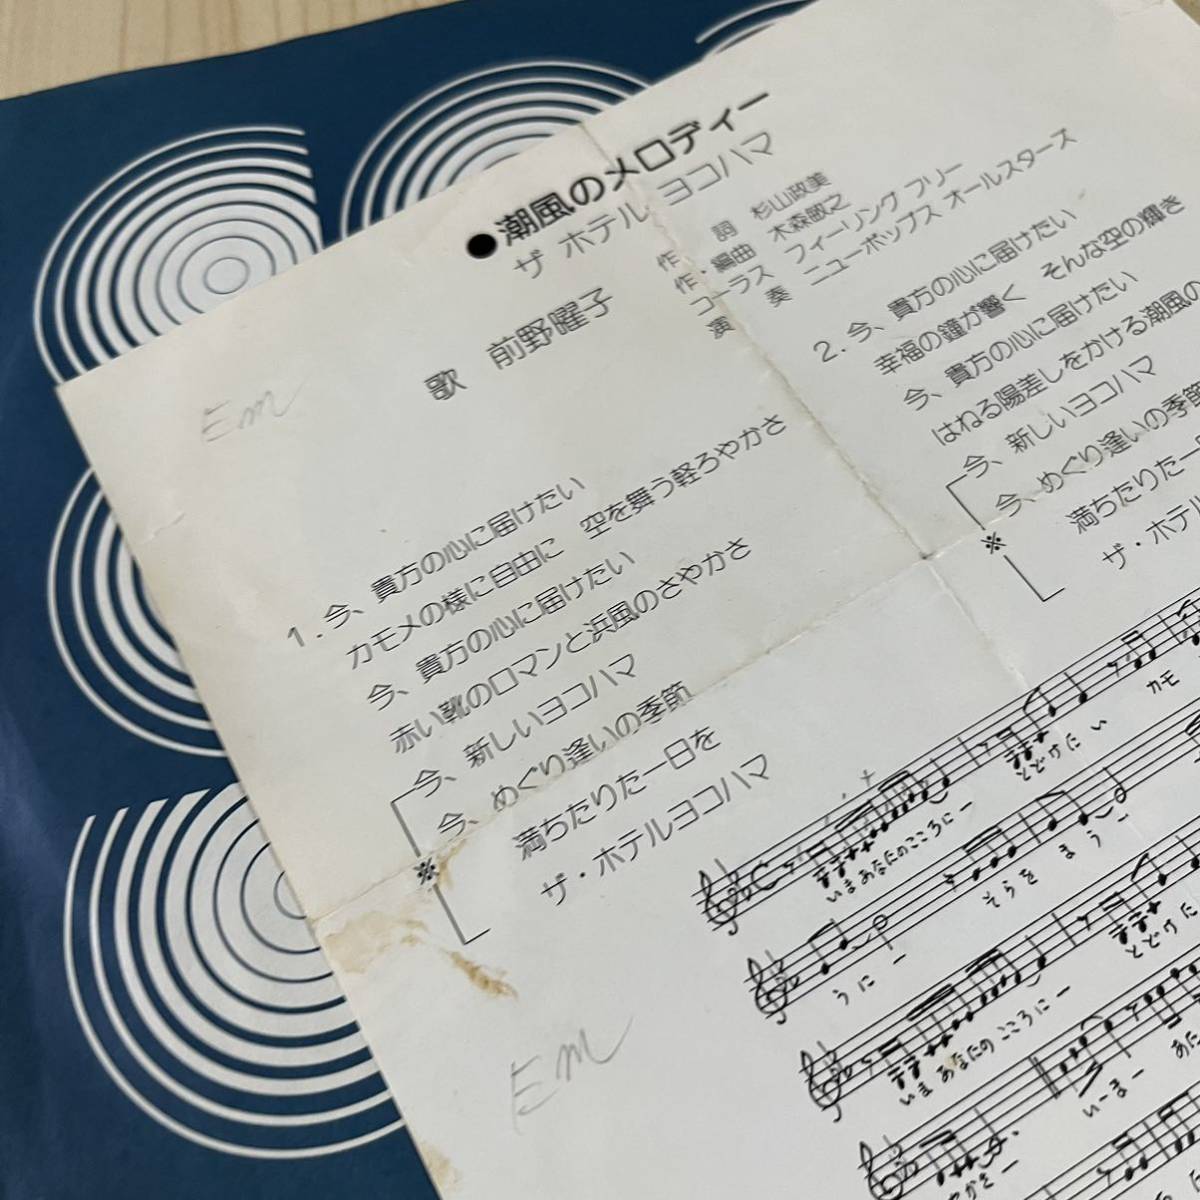 ●潮風のメロディー
ザ ホテル ヨコハマ
作 詞 杉山政美
作・編曲 木森敏之
コーラス フィーリング フリー
演 奏 ニューポップス オールスターズ
歌 前野曜子
Em
1. 今、貴方の心に届けたい
カモメの様に自由に 空を舞う軽ろやかさ
今、貴方の心に届けたい
赤い靴のロマンと浜風のさやかさ
今、新しいヨコハマ
今、めぐり逢いの季節
※
満ちたりた一日を
ザ・ホテルヨコハマ
2. 今、貴方の心に届けたい
幸福の鐘が響く そんな空の輝き
今、貴方の心に届けたい
はねる陽差しをかける潮風の
今、新しいヨコハマ
今、めぐり逢いの季節
※
満ちたりた一
ザ・ホテル
いまあなたのこころにー
とどけたい
カモ
うにー
そらを
まうー
いまあなたのこころにー
とどけた
いーまー
あた
やかさー
Em